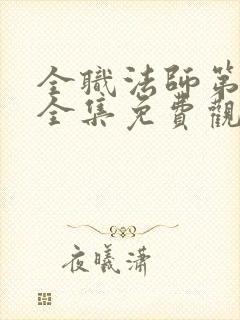 全職法師第
全集免費觀
夜曦瀟